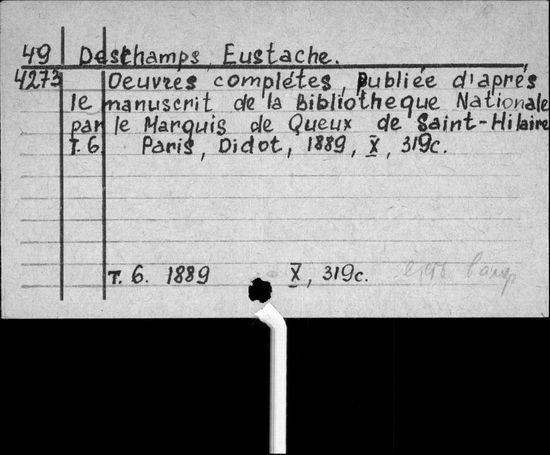 49 Deschamps, Eustache.
4273 Oeuvres complétes, publiée d'aprés
le manuscrit de la Bibliotheque Nationale
par le Marquis de Queux de Saint-Hilaire
T. 6. Paris, Didot, 1889, X, 319c.
T. 6. 1889 X, 319c.